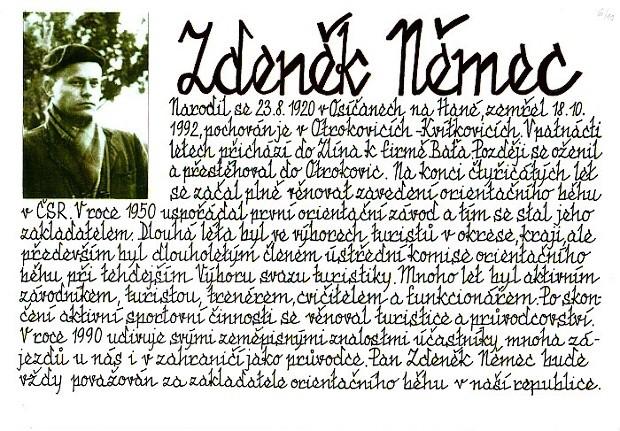 6/10
Zdeněk Němec
Narodil se 23.8.1920 v Osíčanech na Hané, zemřel 18.10.
1992, pochován je v Otrokovicích-Kvítkovicích. V patnácti
letech přichází do Zlína k firmě Baťa. Později se oženil
a přestěhoval do Otrokovic. Na konci čtyřicátých let
se začal plně věnovat zavedení orientačního běhu
v ČSR. V roce 1950 uspořádal první orientační závod a tím se stal jeho
zakladatelem. Dlouhá léta byl ve výborech turistů v okrese, kraji, ale
především byl dlouholetým členem ústřední komise orientačního
běhu při tehdejším Výboru svazu turistiky. Mnoho let byl aktivním
závodníkem, turistou, trenérem, cvičitelem a funkcionářem. Po skon-
čení aktivní sportovní činnosti se věnoval turistice a průvodcovství.
V roce 1990 udivuje svými zeměpisnými znalostmi účastníky mnoha zá-
jezdů u nás i v zahraničí jako průvodce. Pan Zdeněk Němec bude
vždy považován za zakladatele orientačního běhu v naší republice.